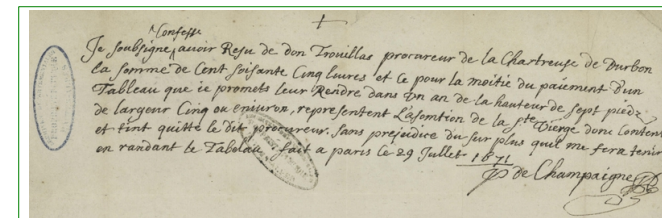 Confesse
Je soubsigne avoir Resu de don Trouillas procureur de la Chartreuse de Durbon
la somme de Cent soisante Cinq livres et ce pour la moitie du paiement d'un
Tableau que ie promets leur Rendre dans un an de la hauteur de sept piedz
de largeur Cinq ou environ, representent L'asomtion de la ste Vierge donc Content
et tint quitte le dit procureur, sans prejudice du sur plus quil me fera tenir
en randant le Tabelau. fait a paris le 29 Jullet 1671
de Champaigne